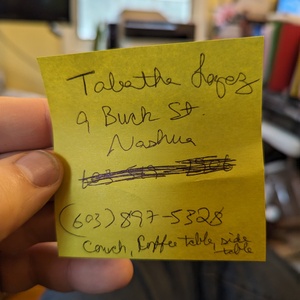 Tabatha Lopez
9 Buck St.
Nashua
(603) 897-5328
Couch, Coffee table, side
table